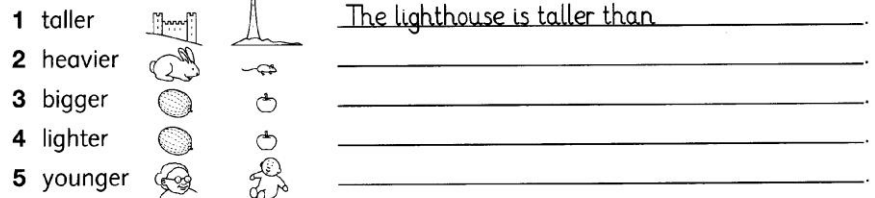 1 taller The lighthouse is taller than .
2 heavier .
3 bigger .
4 lighter .
5 younger .